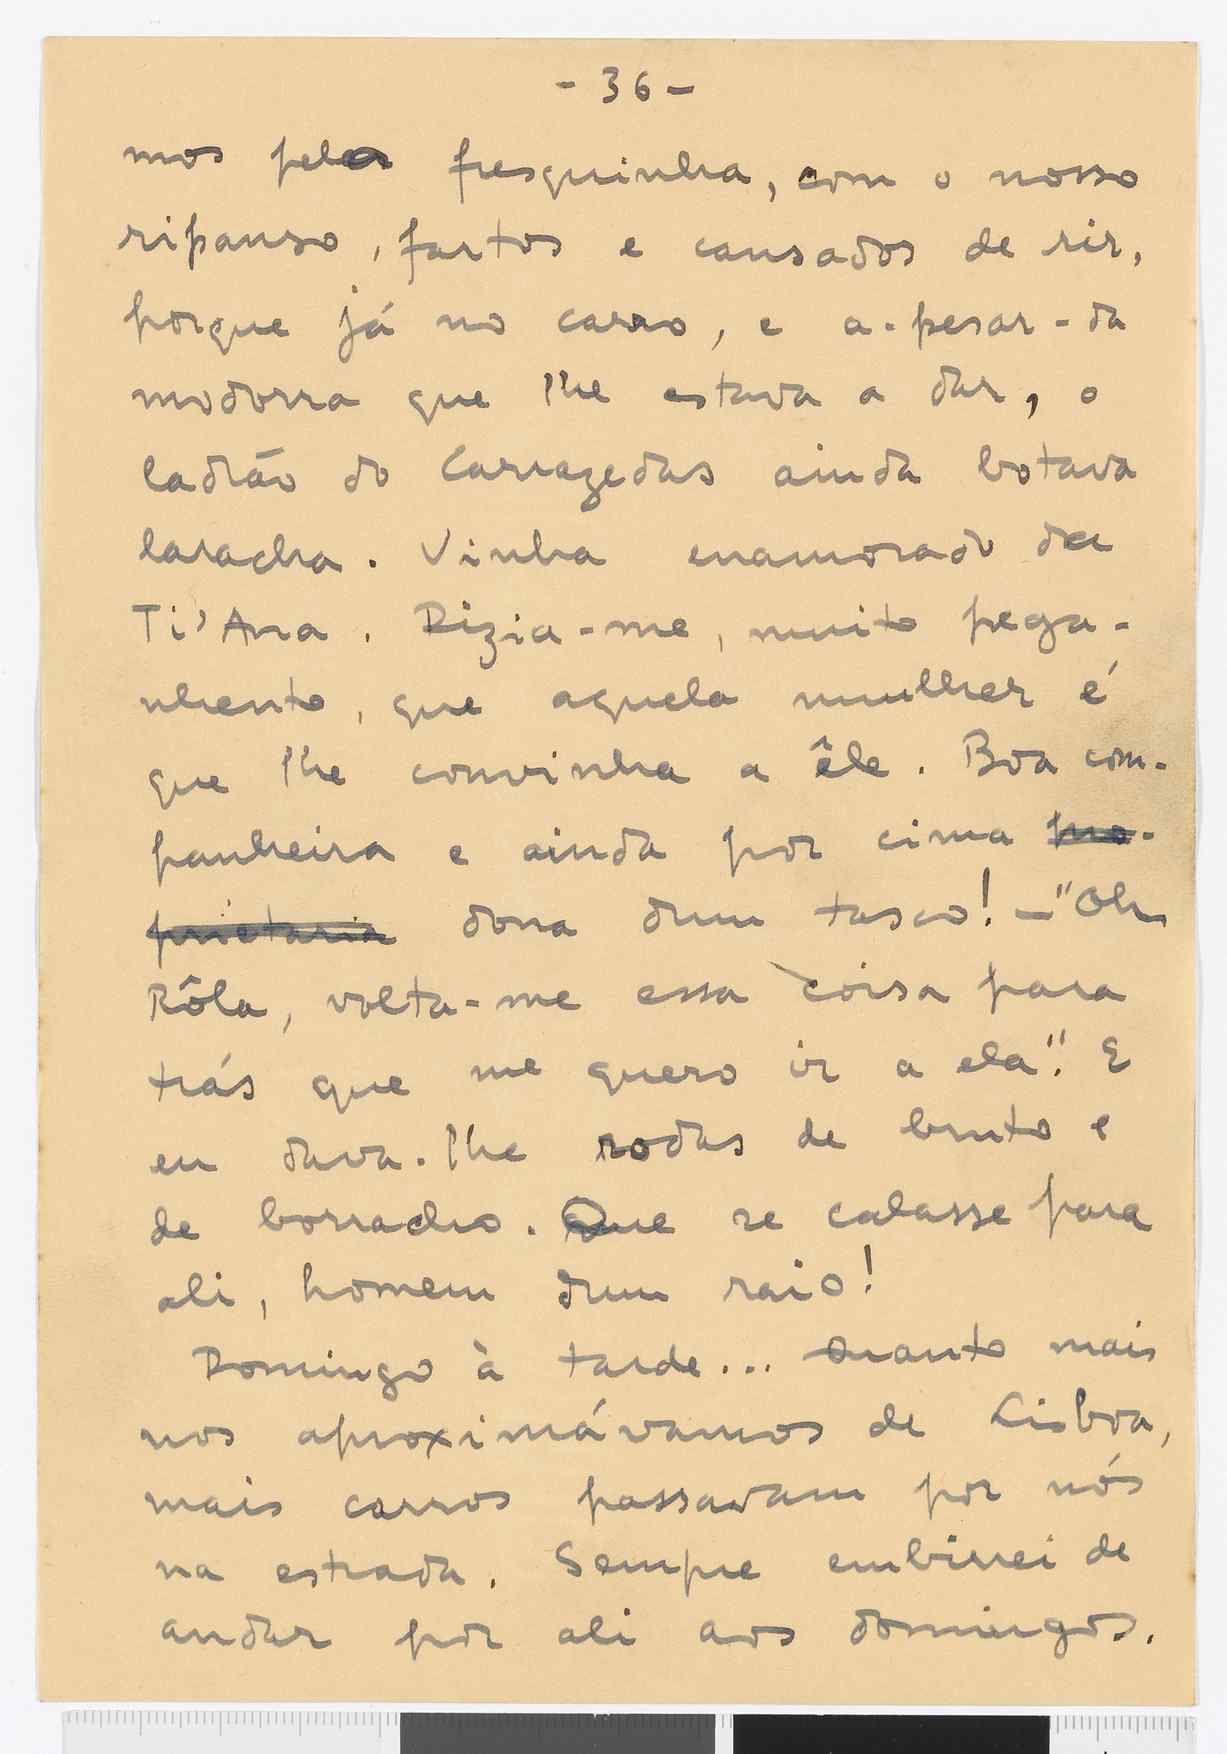 - 36 -
mos pela fresquinha, com o nosso
ripanso, fartos e cansados de rir,
porque já no carro, e a-pesar-da
modorra que lhe estava a dar, o
ladrão do Carrazedas ainda botava
laracha. Vinha enamorado da
Ti'Ana. Dizia-me, muito pega-
nhento, que aquela mulher é
que lhe convinha a êle. Boa com-
panheira e ainda por cima pro-
prietaria dona dum tasco! - "Oh
Rôla, volta-me essa coisa para
trás que me quero ir a ela". E
eu dava-lhe rodas de bruto e
de borracho. Que se calasse para
ali, homem dum raio!
Domingo à tarde... Quanto mais
nos aproximávamos de Lisboa,
mais carros passavam por nós
na estrada. Sempre embirrei de
andar por ali aos domingos.